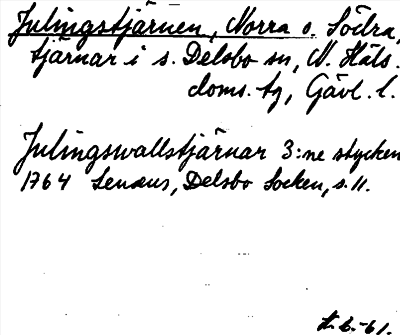 Julingstjärnen, Norra o. Södra,
tjärnar i s. Delsbo sn, N. Häls.
doms. tg, Gävl. l.
Julingswallstjärnar 3:ne stycken
1764 Lenæus, Delsbo Socken, s. 11.
-61.